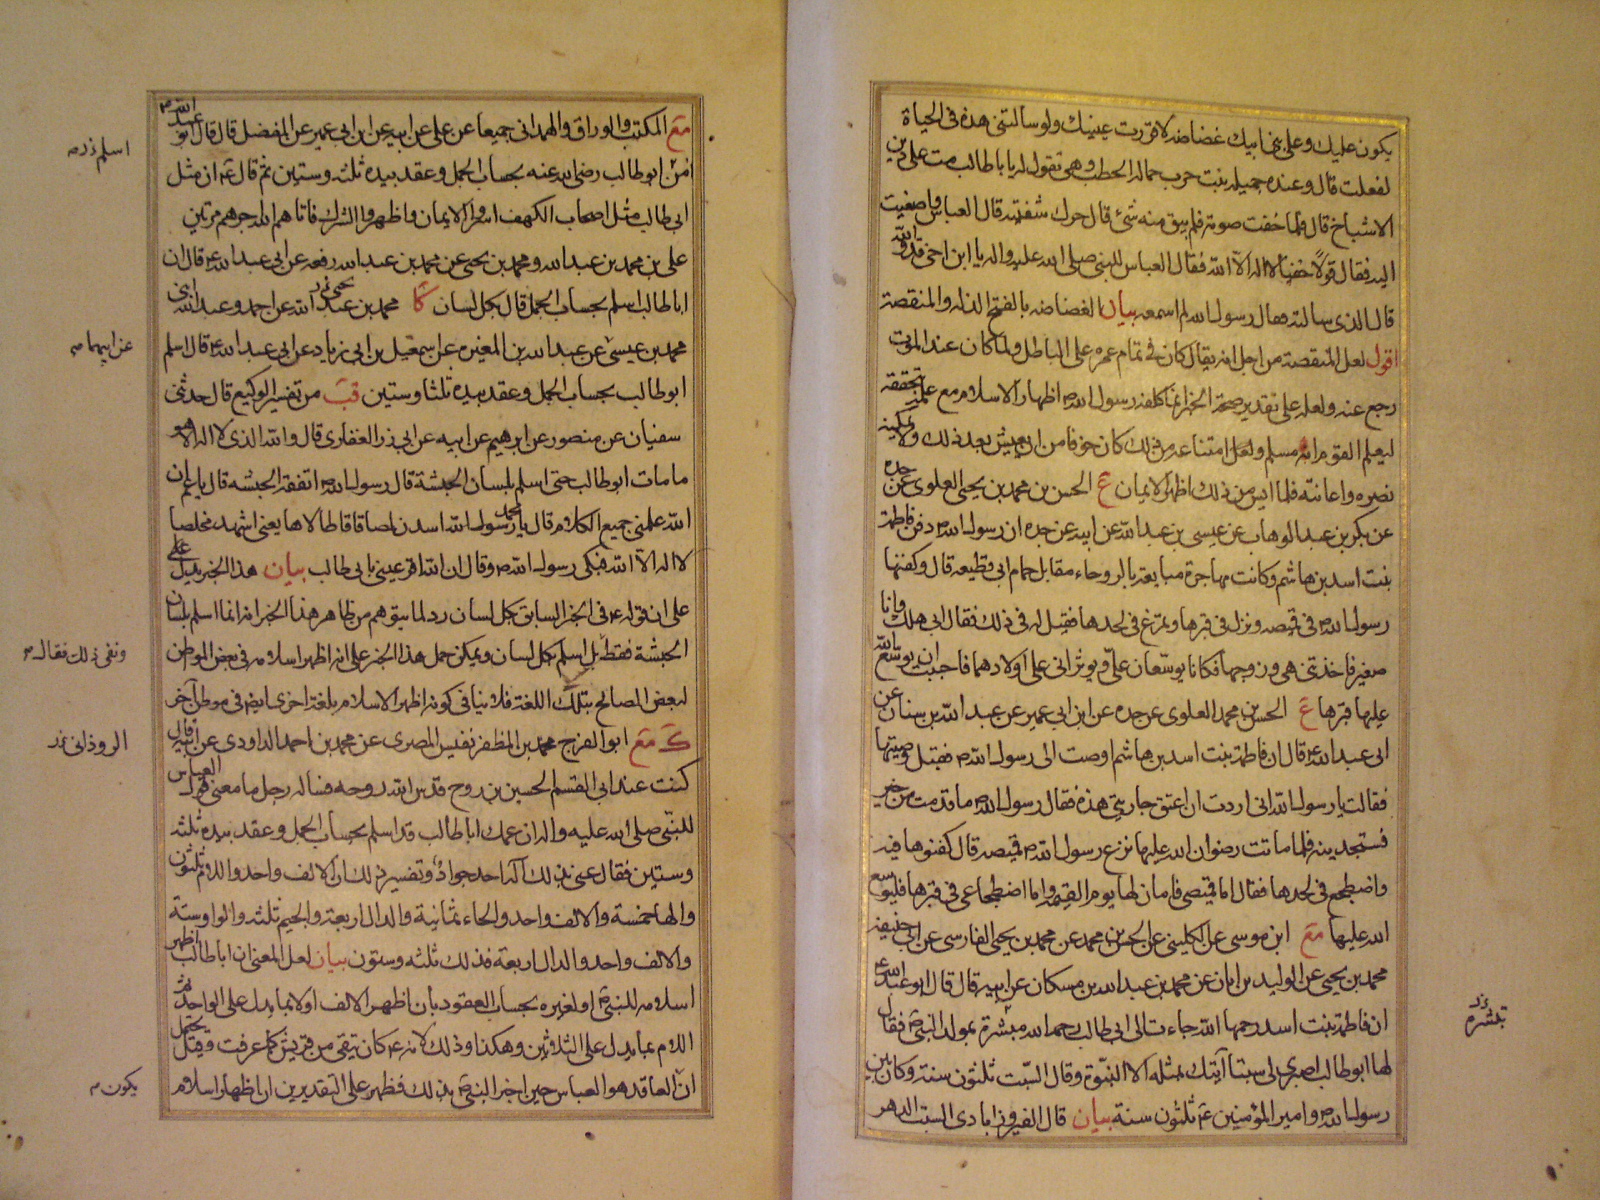 يكون عليك وعلى بني ابيك غضاضة لاقررت عينيك ولو سالتني هذه في الحياة
لفعلت قال وعنده جميلة بنت حرب حمالة الحطب وهي تقول له يا باطالب مت على دين
الاشياخ قال فلما خفت صوته فلم يبق منه شئ قال حرك شفتيه قال العباس واصغيت
اليه فقال قولا خفيا لا اله الا الله فقال العباس للنبي صلى الله عليه واله يا ابن اخي قد والله
قال الذي سالته فقال رسول الله لم اسمعه بيان الغضاضة بالفتح الذلة والمنقصة
اقول لعل المنقصة من اجل انه يقال كان في تمام عمره على الباطل ولما كان عند الموت
رجع عنه ولعله على تقدير صحة الخبر انما كلفه رسول الله ص اظهار الاسلام مع علمه بتحققه
ليعلم القوم انه مسلم ولعل امتناعه من ذلك كان خوفا من ان يعيش بعد ذلك ولا يمكنه
نصره واعانته فلما ايس من ذلك اظهر الايمان ع الحسن بن محمد بن يحيى العلوي عن جده
عن بكر بن عبد الوهاب عن عيسى بن عبد الله عن ابيه عن جده ان رسول الله ص دفن فاطمة
بنت اسد بن هاشم وكانت مهاجرة مبايعة بالروحاء مقابل حمام ابي قطيعة قال وكفنها
رسول الله ص في قميصه ونزل في قبرها وتمرغ في لحدها فقيل له في ذلك فقال ابي هلك وانا
صغير فاخذتني هي وزوجها فكانا يوسعان علي ويوثراني على اولادهما فاحببت ان يوسع الله
عليها قبرها ع الحسن بن محمد العلوي عن جده عن ابن ابي عمير عن عبد الله بن سنان عن
ابي عبد الله ع قال ان فاطمة بنت اسد بن هاشم اوصت الى رسول الله ص فقبل وصيتها
فقالت يا رسول الله اني اردت ان اعتق جاريتي هذه فقال رسول الله ص ما قدمت من خير
فستجدينه فلما ماتت رضوان الله عليها نزع رسول الله ص قميصه قال كفنوها فيه
واضطجع في لحدها فقال اما قميصي فامان لها يوم القيمة واما اضطجاعي في قبرها فليوسع
الله عليها مع ابن موسى عن الكليني عن الحسن بن محمد عن محمد بن يحيى الفارسي عن ابي حنيفة
محمد بن يحيى عن الوليد بن ابان عن محمد بن عبد الله بن مسكان عن ابيه قال قال ابو عبد الله ع
ان فاطمة بنت اسد رحمها الله جاءت الى ابي طالب رحمه الله مبشرة بمولد النبي ص فقال
لها ابو طالب اصبري لي سبتا آتيك بمثله الا النبوة وقال السبت ثلثون سنة وكان بين
رسول الله ص وامير المؤمنين ع ثلثون سنة بيان قال الفيروزابادي السبت الدهر
تبشره
مع المكتب والوراق والهمداني جميعا عن علي عن ابيه عن ابن ابي عمير عن المفضل قال قال ابو عبد الله ع
امن ابو طالب رضي الله عنه بحساب الجمل وعقد بيده ثلثه وستين ثم قال ع ان مثل
ابي طالب مثل اصحاب الكهف اسروا الايمان واظهروا الشرك فاتاهم الله اجرهم مرتين
علي بن محمد بن عبد الله ومحمد بن يحيى عن محمد بن عبد الله رفعه عن ابي عبد الله ع قال ان
اباطالب اسلم بحساب الجمل قال بكل لسان كا محمد بن يحيى عن احمد وعبد الله ابني
محمد بن عيسى عن عبد الله بن المغيرة عن اسمعيل بن ابي زياد عن ابي عبد الله ع قال اسلم
ابو طالب بحساب الجمل وعقد بيده ثلثا وستين قب من تفسير الوكيع قال حدثني
سفيان عن منصور عن ابرهيم عن ابيه عن ابي ذر الغفاري قال والله الذي لا اله الا هو
ما مات ابو طالب حتى اسلم بلسان الحبشة قال رسول الله ص اتفقه الحبشة قال يا عم ان
الله علمني جميع الكلام قال يا محمد اسدن لمصاقا قاطالاها يعني اشهد مخلصا
لا اله الا الله فبكى رسول الله ص وقال ان الله اقر عيني بابي طالب بيان هذا الخبر يدل على
على ان قوله ع في الخبر السابق بكل لسان رد لما يتوهم من ظاهر هذا الخبر انه انما اسلم بلسان
الحبشة فقط بل اسلم بكل لسان ويمكن حمل هذا الخبر على انه اظهر اسلامه في بعض المواطن
لبعض المصالح بتلك اللغة فلا ينافي كونه اظهر الاسلام بلغة اخرى ايضا في موطن آخر
ك مع ابو الفرج محمد بن المظفر نفيس المصري عن محمد بن احمد الداودي عن ابيه قال
كنت عند ابي القسم الحسين بن روح قدس الله روحه فساله رجل ما معنى قول العباس
للنبي صلى الله عليه واله ان عمك اباطالب قد اسلم بحساب الجمل وعقد بيده ثلثة
وستين فقال عنى بذلك اله احد جواد وتفسير ذلك ان الالف واحد واللام ثلثون
والها خمسة والالف واحد والحاء ثمانية والدال اربعة والجيم ثلثه والواو ستة
والالف واحد والدال اربعة فذلك ثلثه وستون بيان لعل المعنى ان اباطالب اظهر
اسلامه للنبي ص او لغيره بحساب العقود بان اظهر الالف اولا بما يدل على الواحد ثم
اللام بما يدل على الثلاثين وهكذا وذلك لانه ع كان يتقي من قريش كما عرفت وقيل يحتمل
ان العاقد هو العباس حين اخبر النبي ص بذلك فظهر على التقديرين ان اظهار اسلامه
اسلم
عن ابيهما
ونفى ذلك فقال
الروذاني
يكون